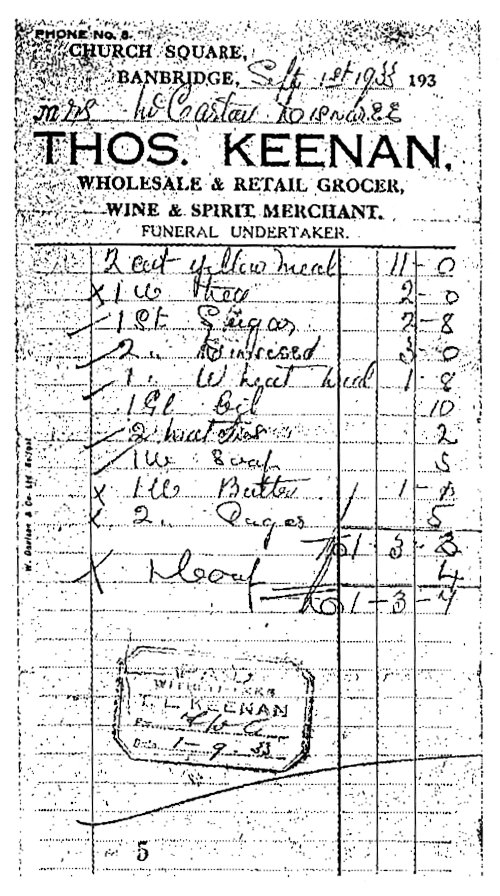 PHONE NO. 8.
CHURCH SQUARE,
BANBRIDGE, Sept 1st 1933 193
Mrs McCartan
THOS. KEENAN,
WHOLESALE & RETAIL GROCER,
WINE & SPIRIT MERCHANT.
FUNERAL UNDERTAKER.
2 cwt yellow meal 11-0
X 1 lb Tea 2-0
1 St Sugar 2-8
2 " 3-0
1 " Wheat meal 1-8
1 Gl Oil 10
2 2
1 lb Soap 5
X 1 lb Butter 1-
X 2 " Sugar 5
1-3-3
X 4
1-3-7
PAID
WITH THANKS
T. L. KEENAN
Date 1-9-33
5
W. Davison & Co. Ltd Belfast